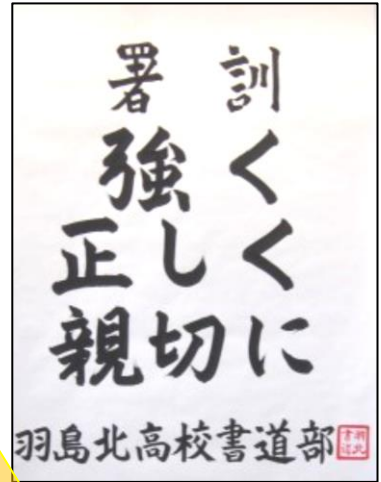 署訓
強く
正しく
親切に
羽島北高校書道部